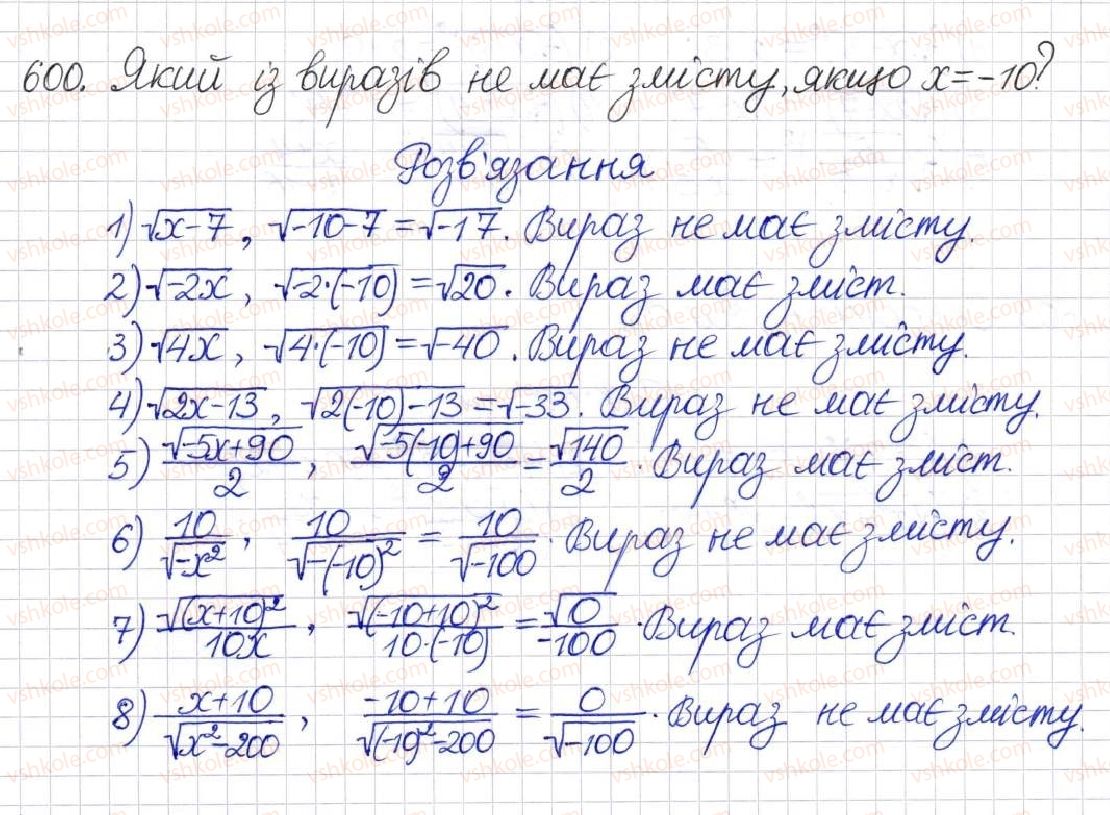 600. Який із виразів не має змісту, якщо x = -10?
Розв'язання
1) √(x-7), √(-10-7) = √(-17). Вираз не має змісту.
2) √(-2x), √(-2·(-10)) = √20. Вираз має зміст.
3) √(4x), √(4·(-10)) = √(-40). Вираз не має змісту.
4) √(2x-13), √(2(-10)-13) = √(-33). Вираз не має змісту.
5) √(-5x+90)/2, √(-5(-10)+90)/2 = √140/2. Вираз має зміст.
6) 10/√(-x²), 10/√(-(-10)²) = 10/√(-100). Вираз не має змісту.
7) √((x+10)²)/10x, √((-10+10)²)/10·(-10) = √0/-100. Вираз має зміст.
8) x+10/√(x²-200), -10+10/√((-10)²-200) = 0/√(-100). Вираз не має змісту.